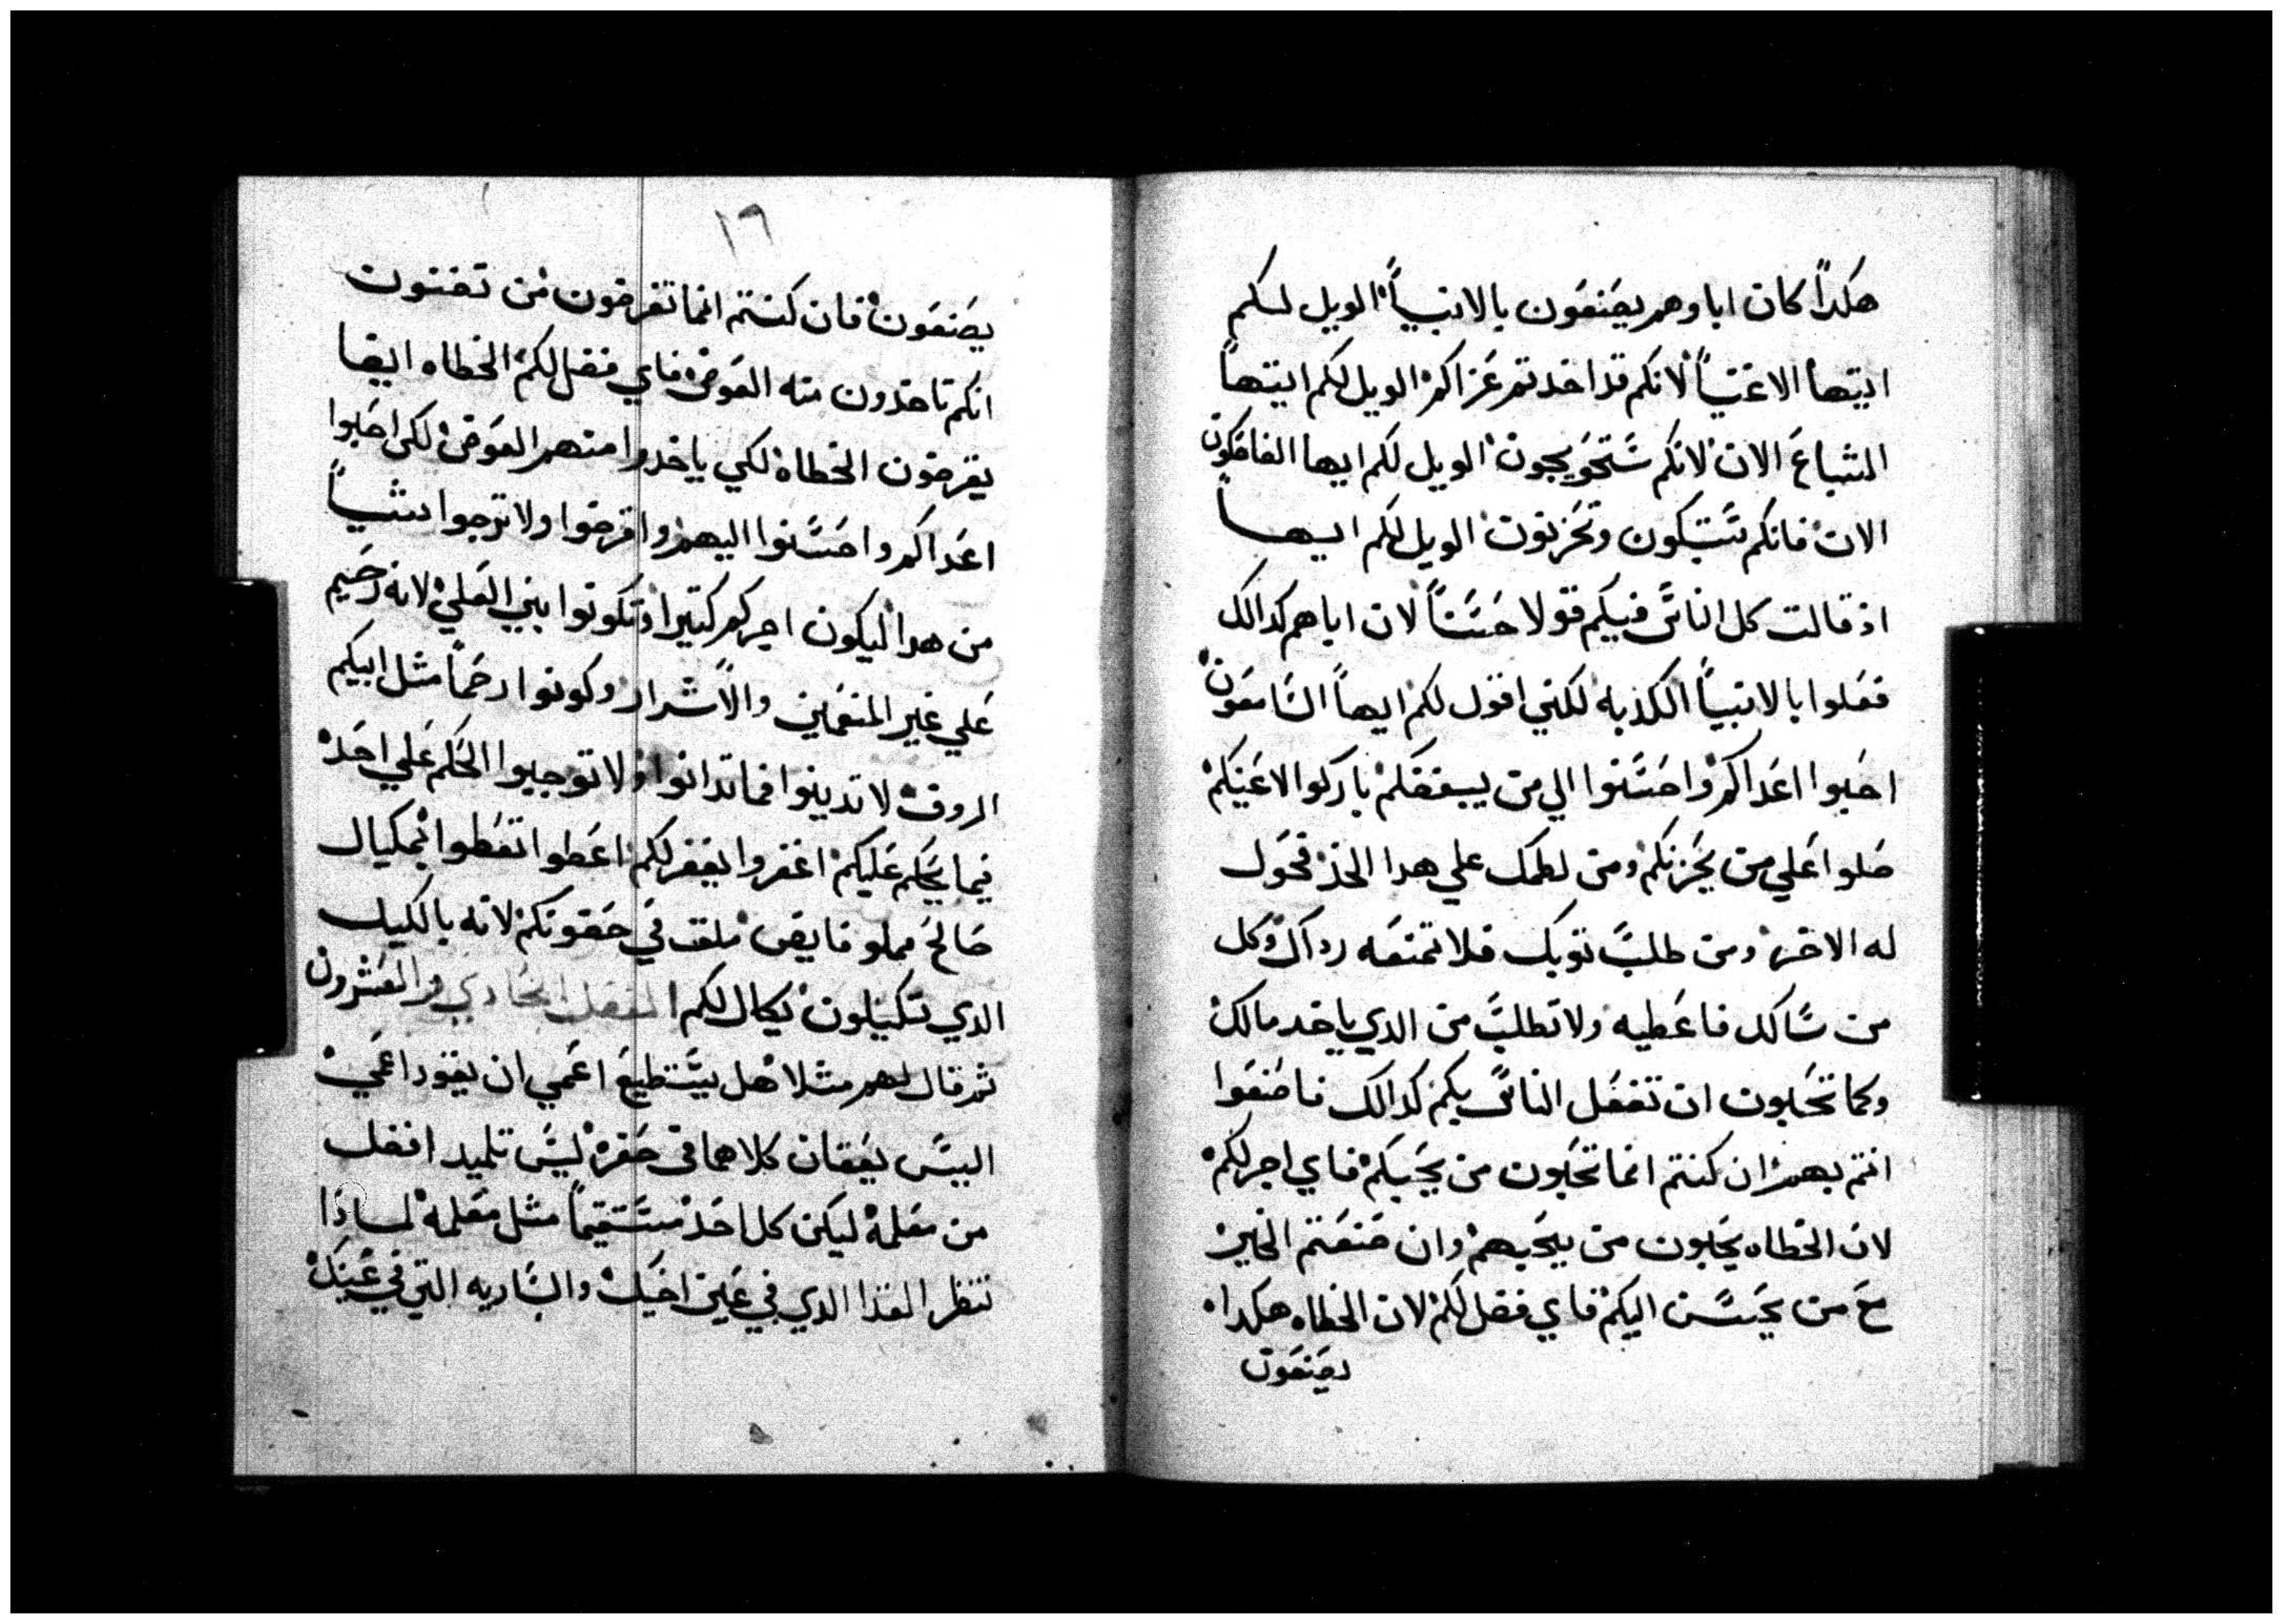 هكداً كان اباوهم يصنعون بالانبياً الويل لكم
ايتها الاغنياً لانكم قد اخدتم عزاكم الويل لكم ايتهاً
الشباع الان لانكم ستحويجون الويل لكم ايها الضاحكون
الان فانكم ستبكون وتحزنون الويل لكم ايهاً
اذ قالت كل الناس فيكم قولا حسناً لان اباهم كدالك
فعلوا بالانبياً الكذبه لكني اقول لكم ايهاً السامعون
احبوا اعداكم واحسنوا الي من يبغضكم باركوا لاعنيكم
صلوا علي من يحزنكم ومن لطمك علي هدا الخد فحول
له الاخر ومن طلب توبك فلا تمنعه رداك وكل
من سالك فاعطيه ولا تطلب من الدي ياخد مالك
وكما تحبون ان تفعل الناس بكم كدالك فاصنعوا
انتم بهم ان كنتم انما تحبون من يحبكم فاي اجر لكم
لان الخطاه يحبون من يحبهم وان صنعتم الخير
مع من يحسن اليكم فاي فضل لكم لان الخطاه هكدا
يصنعون
١٦
يصنعون فان كنتم انما تقرضون من تضنون
انكم تاخدون منه العوض فاي فضل لكم الخطاه ايضا
يقرضون الخطاه لكي ياخدوا منهم العوض لكن احبوا
اعداكم واحسنوا اليهم واقرضوا ولا ترجوا شياً
من هدا ليكون اجركم كتيرا وتكونوا بني العلي لانه رحيم
علي غير المنعمين والاشرار وكونوا رحماً مثل ابيكم
الروف لا تدينوا فما تدانوا ولا توجبوا الحكم علي احد
فيما يحكم عليكم اغفروا يغفر لكم اعطوا تعطوا بمكيال
صالح مملو فايض ملقى في حضونكم لانه بالكيل
الدي تكيلون يكال لكم الفصل الحادي والعشرون
ثم قال لهم مثلا هل يستطيع اعمي ان يقود اعمي
اليس يقعان كلاهما في حفره ليس تلميد افضل
من معلمه ليكن كل احد مستقيماً مثل معلمه لماذا
تنظر القذا الدي في عين اخيك والساريه التي في عينك